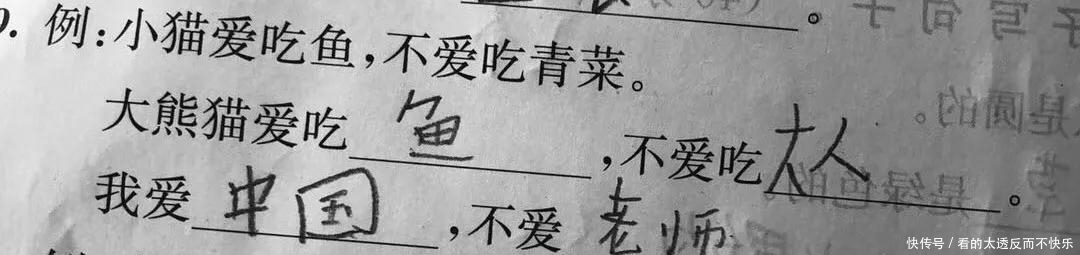 例:小猫爱吃鱼,不爱吃青菜。
大熊猫爱吃鱼,不爱吃大人。
我爱中国,不爱老师
快传号/看的太透反而不快乐